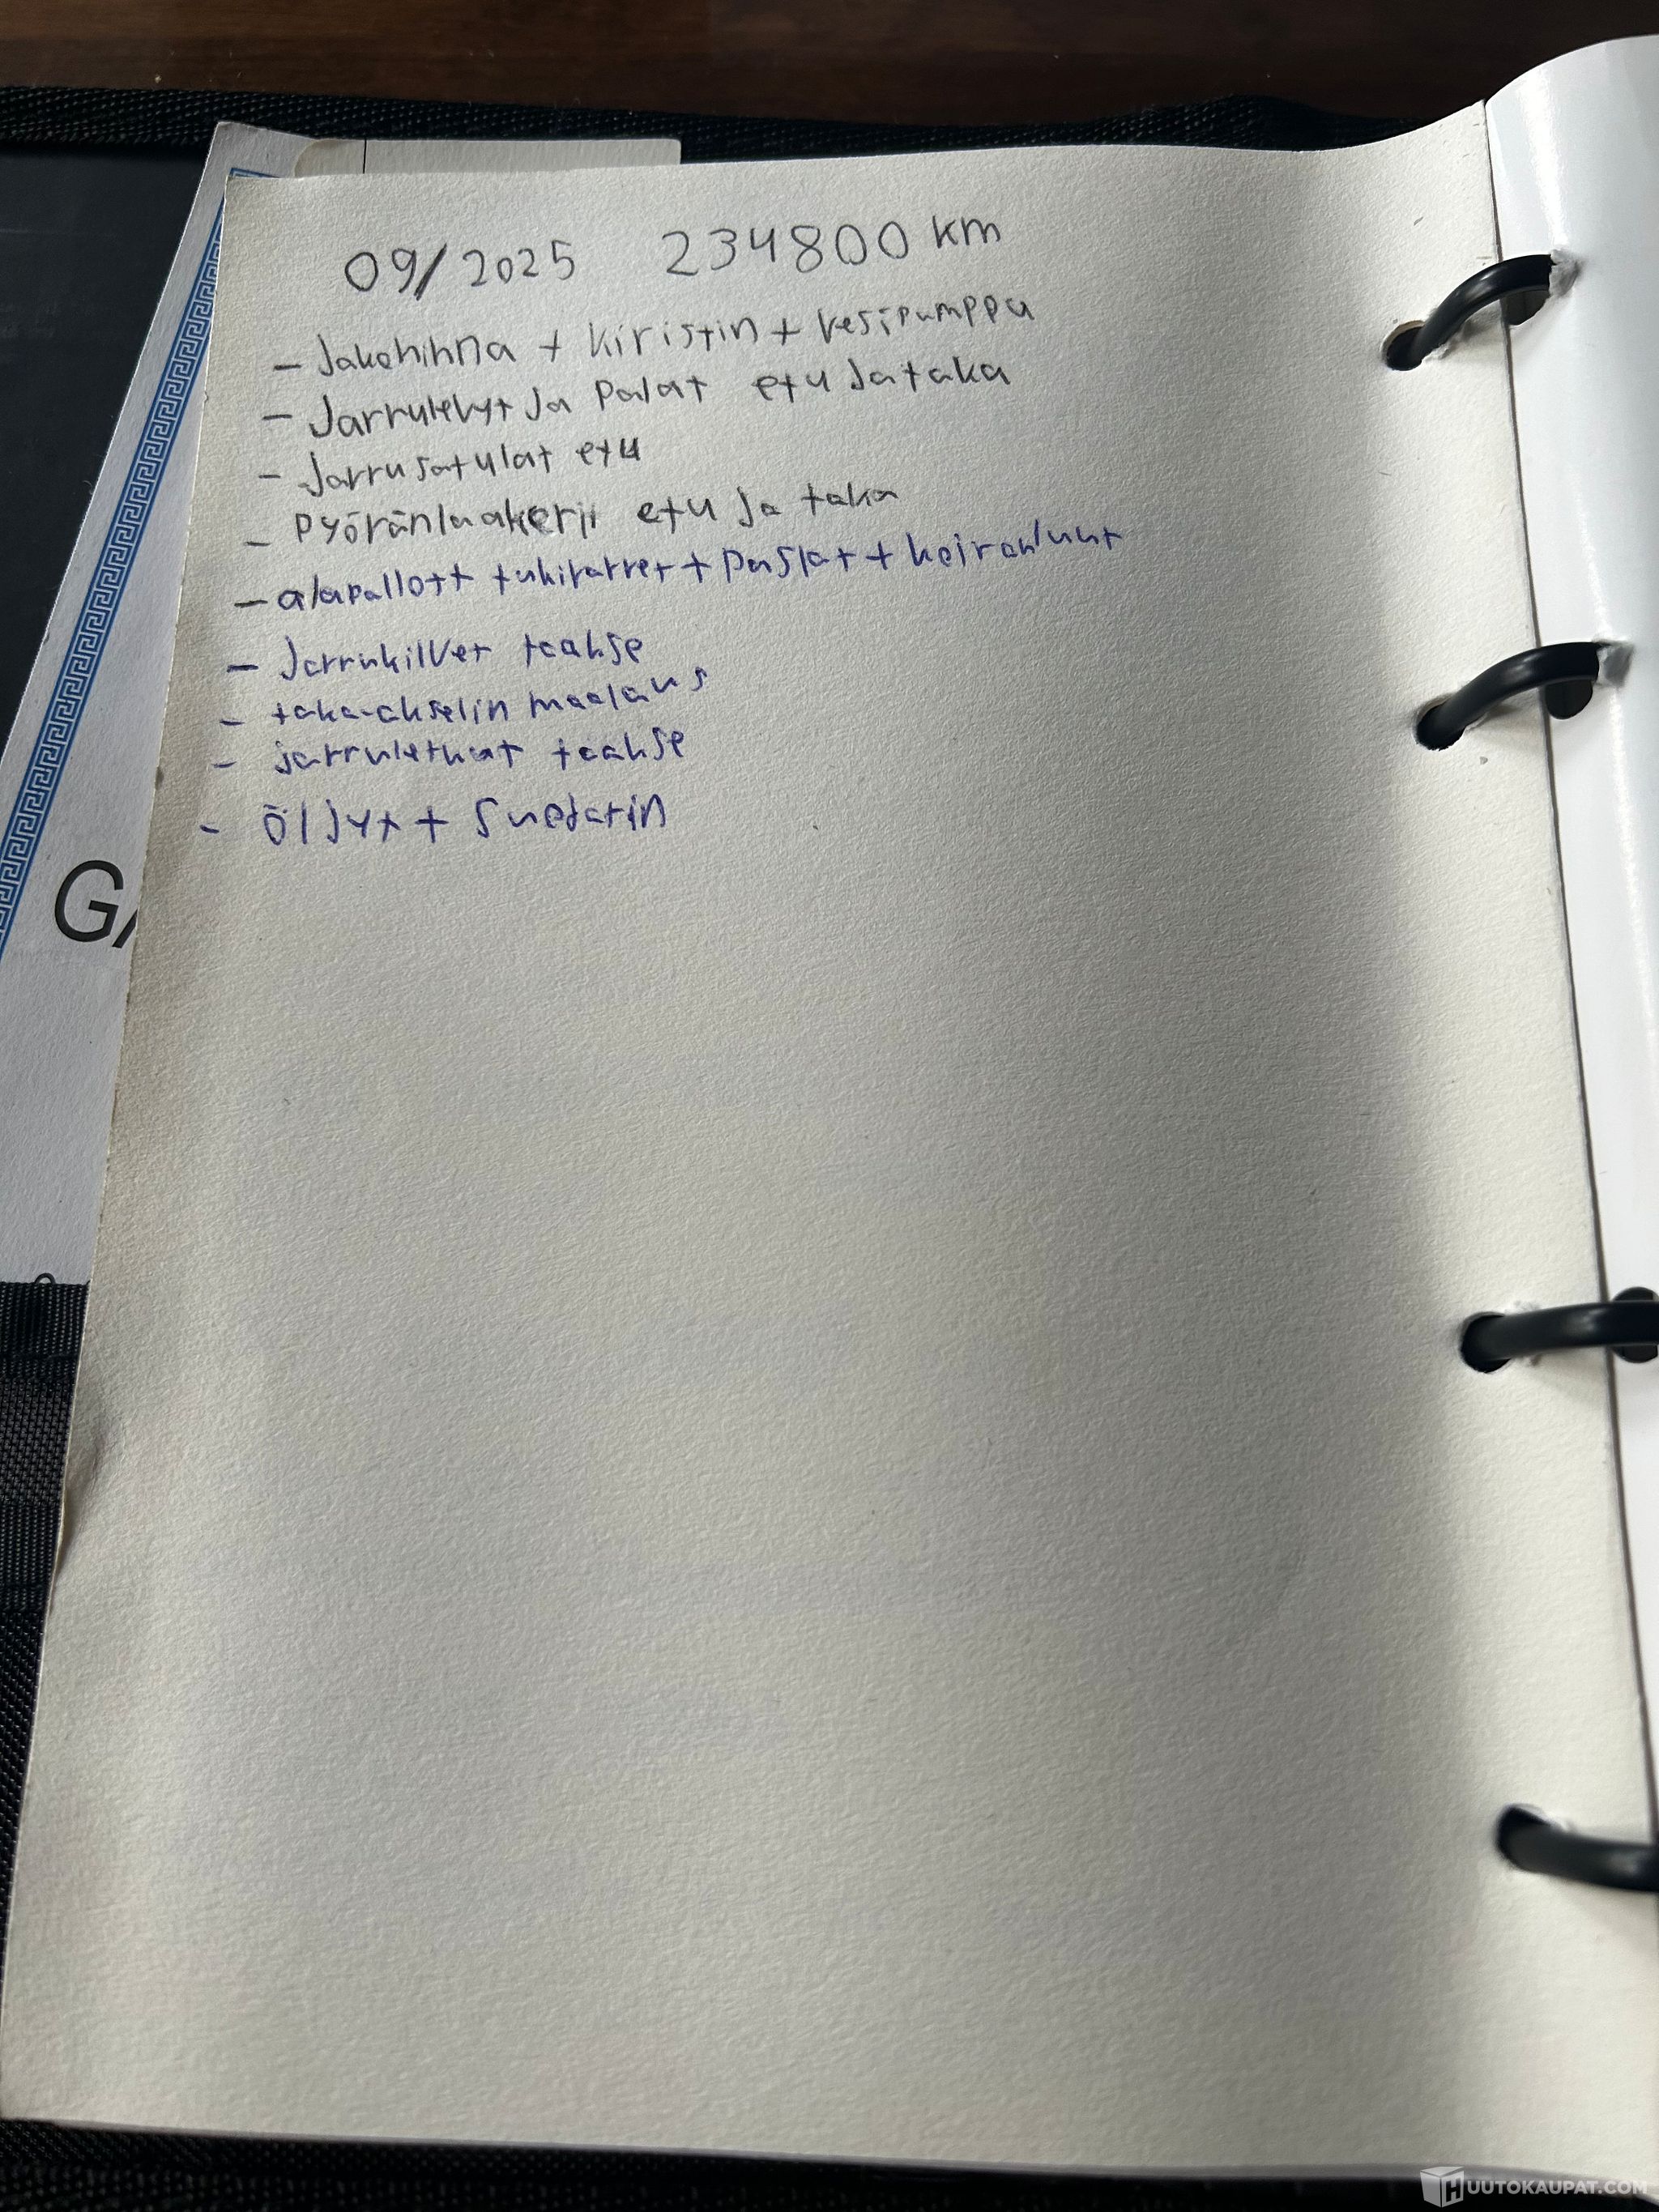 09/2025 234800 km
- Jakohihna + kiristin + vesipumppu
- Jarrulevyt ja palat etu ja taka
- Jarrusatulat etu
- pyöränlaakerii etu ja taka
- alapallott tukivarret + puslat + koiranluut
- Jarrukilvet taakse
- taka-akselin maalaus
- jarruletkut taakse
- öljyt + suodatin
GA
HUUTOKAUPAT.COM